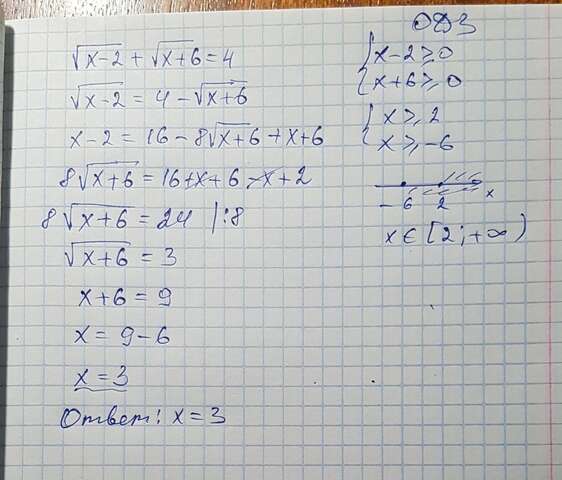 √x-2 + √x+6 = 4
√x-2 = 4 - √x+6
x-2 = 16 - 8√x+6 + x+6
8√x+6 = 16+x+6-x+2
8√x+6 = 24 |:8
√x+6 = 3
x+6 = 9
x = 9-6
x = 3
Ответ: x = 3
ОДЗ
{ x-2 ≥ 0
{ x+6 ≥ 0
{ x ≥ 2
{ x ≥ -6
-6 2 x
x ∈ [2; +∞)